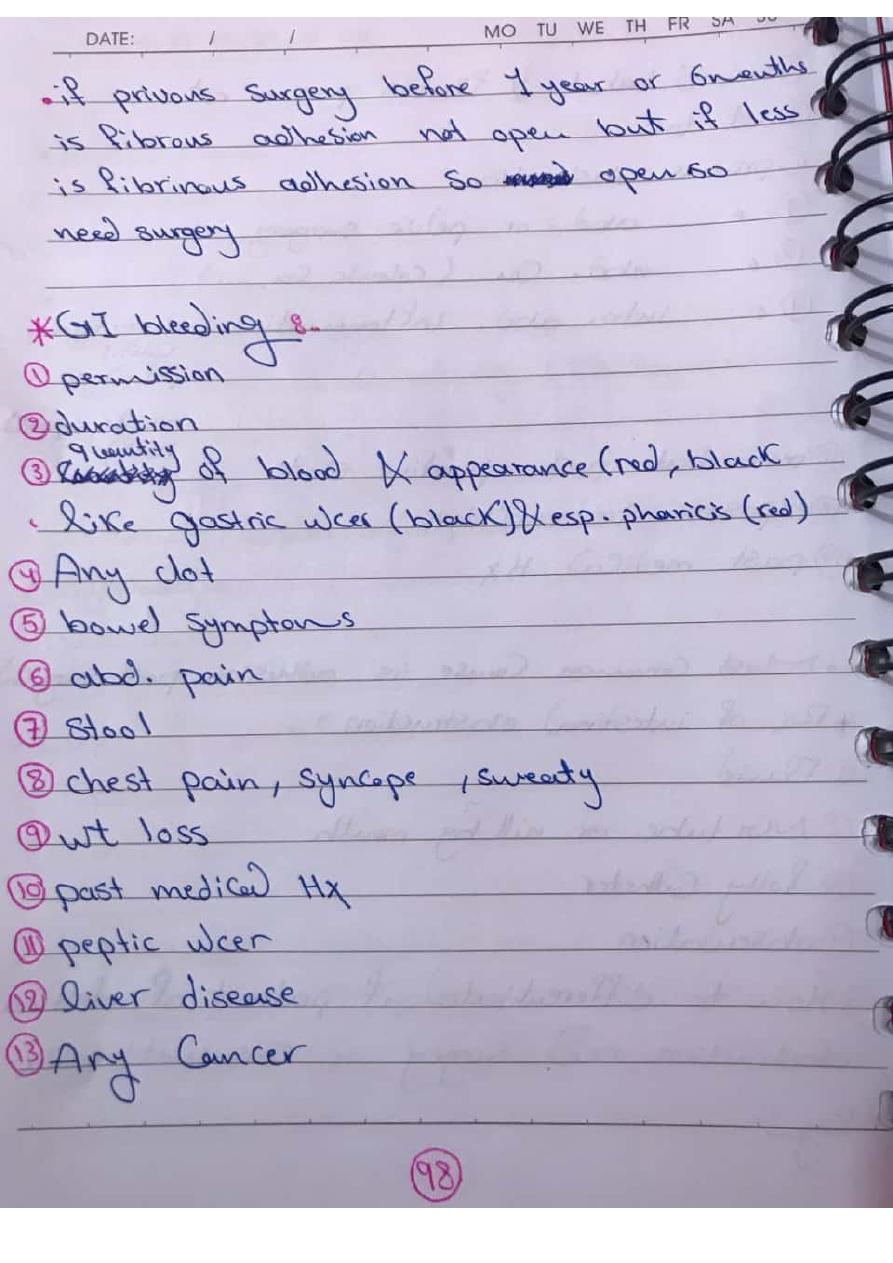 DATE: / / MO TU WE TH FR SA SU
• if privous surgery before 1 year or 6 months
is fibrous adhesion not open but if less
is fibrinous adhesion so open so
need surgery
* GI bleeding 8..
① permission
② duration
quantity
③ of blood & appearance (red, black
like gastric ulcer (black) & esp. pharicis (red)
④ Any clot
⑤ bowel symptoms
⑥ abd. pain
⑦ Stool
⑧ chest pain, syncope, sweaty
⑨ wt loss
⑩ past medical Hx
⑪ peptic ulcer
⑫ liver disease
⑬ Any Cancer
98